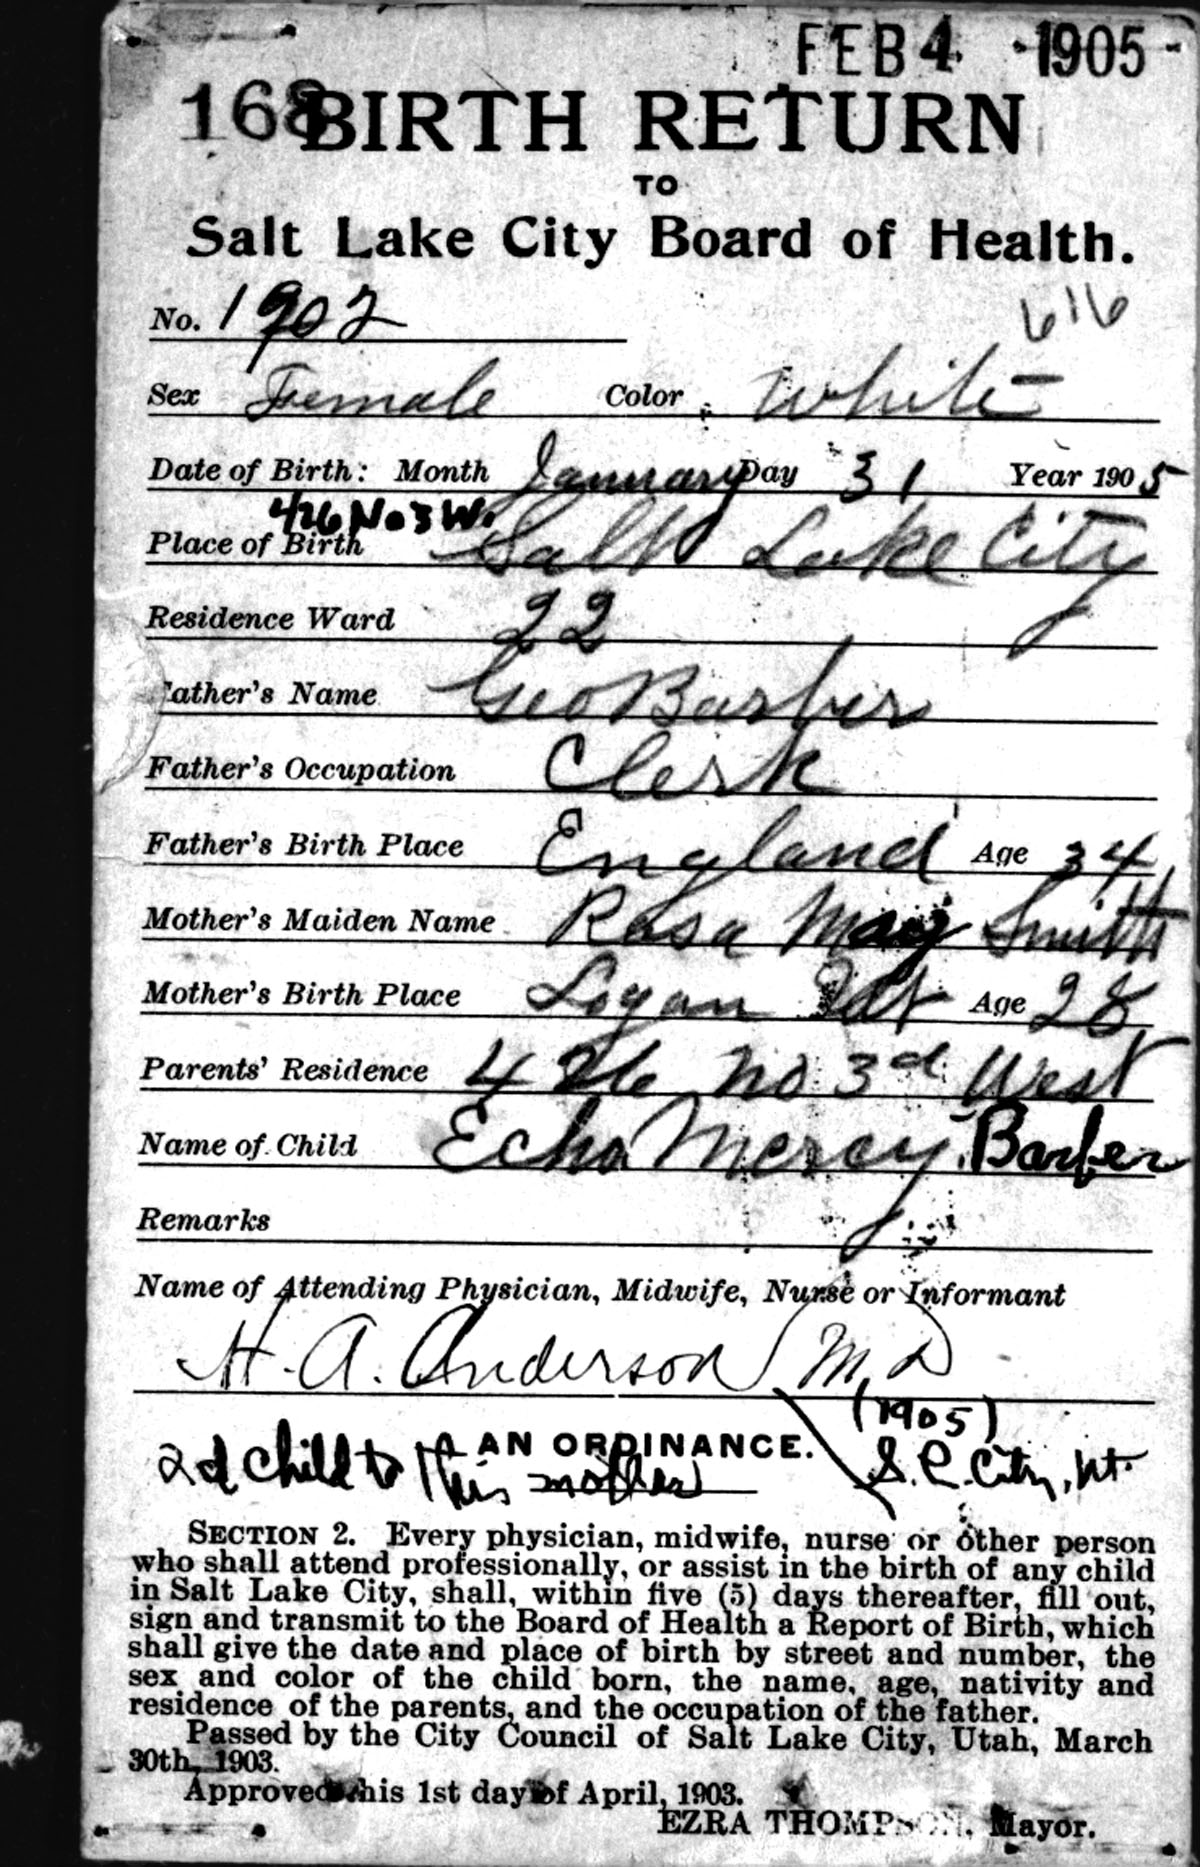 FEB 4 1905
168 BIRTH RETURN
TO
Salt Lake City Board of Health.
616
No. 1902
Sex Female Color White
Date of Birth: Month January Day 31 Year 1905
426 No 3 W.
Place of Birth Salt Lake City
Residence Ward 22
Father's Name Geo Barber
Father's Occupation Clerk
Father's Birth Place England Age 34
Mother's Maiden Name Rosa May Smith
Mother's Birth Place Logan Ut Age 28
Parents' Residence 426 No 3rd West
Name of Child Echo Mercy Barber
Remarks
Name of Attending Physician, Midwife, Nurse or Informant
H. A. Anderson M.D
(1905)
AN ORDINANCE.
2d child to this mother S. L. City, Ut.
SECTION 2. Every physician, midwife, nurse or other person
who shall attend professionally, or assist in the birth of any child
in Salt Lake City, shall, within five (5) days thereafter, fill out,
sign and transmit to the Board of Health a Report of Birth, which
shall give the date and place of birth by street and number, the
sex and color of the child born, the name, age, nativity and
residence of the parents, and the occupation of the father.
Passed by the City Council of Salt Lake City, Utah, March
30th, 1903.
Approved this 1st day of April, 1903.
EZRA THOMPSON, Mayor.